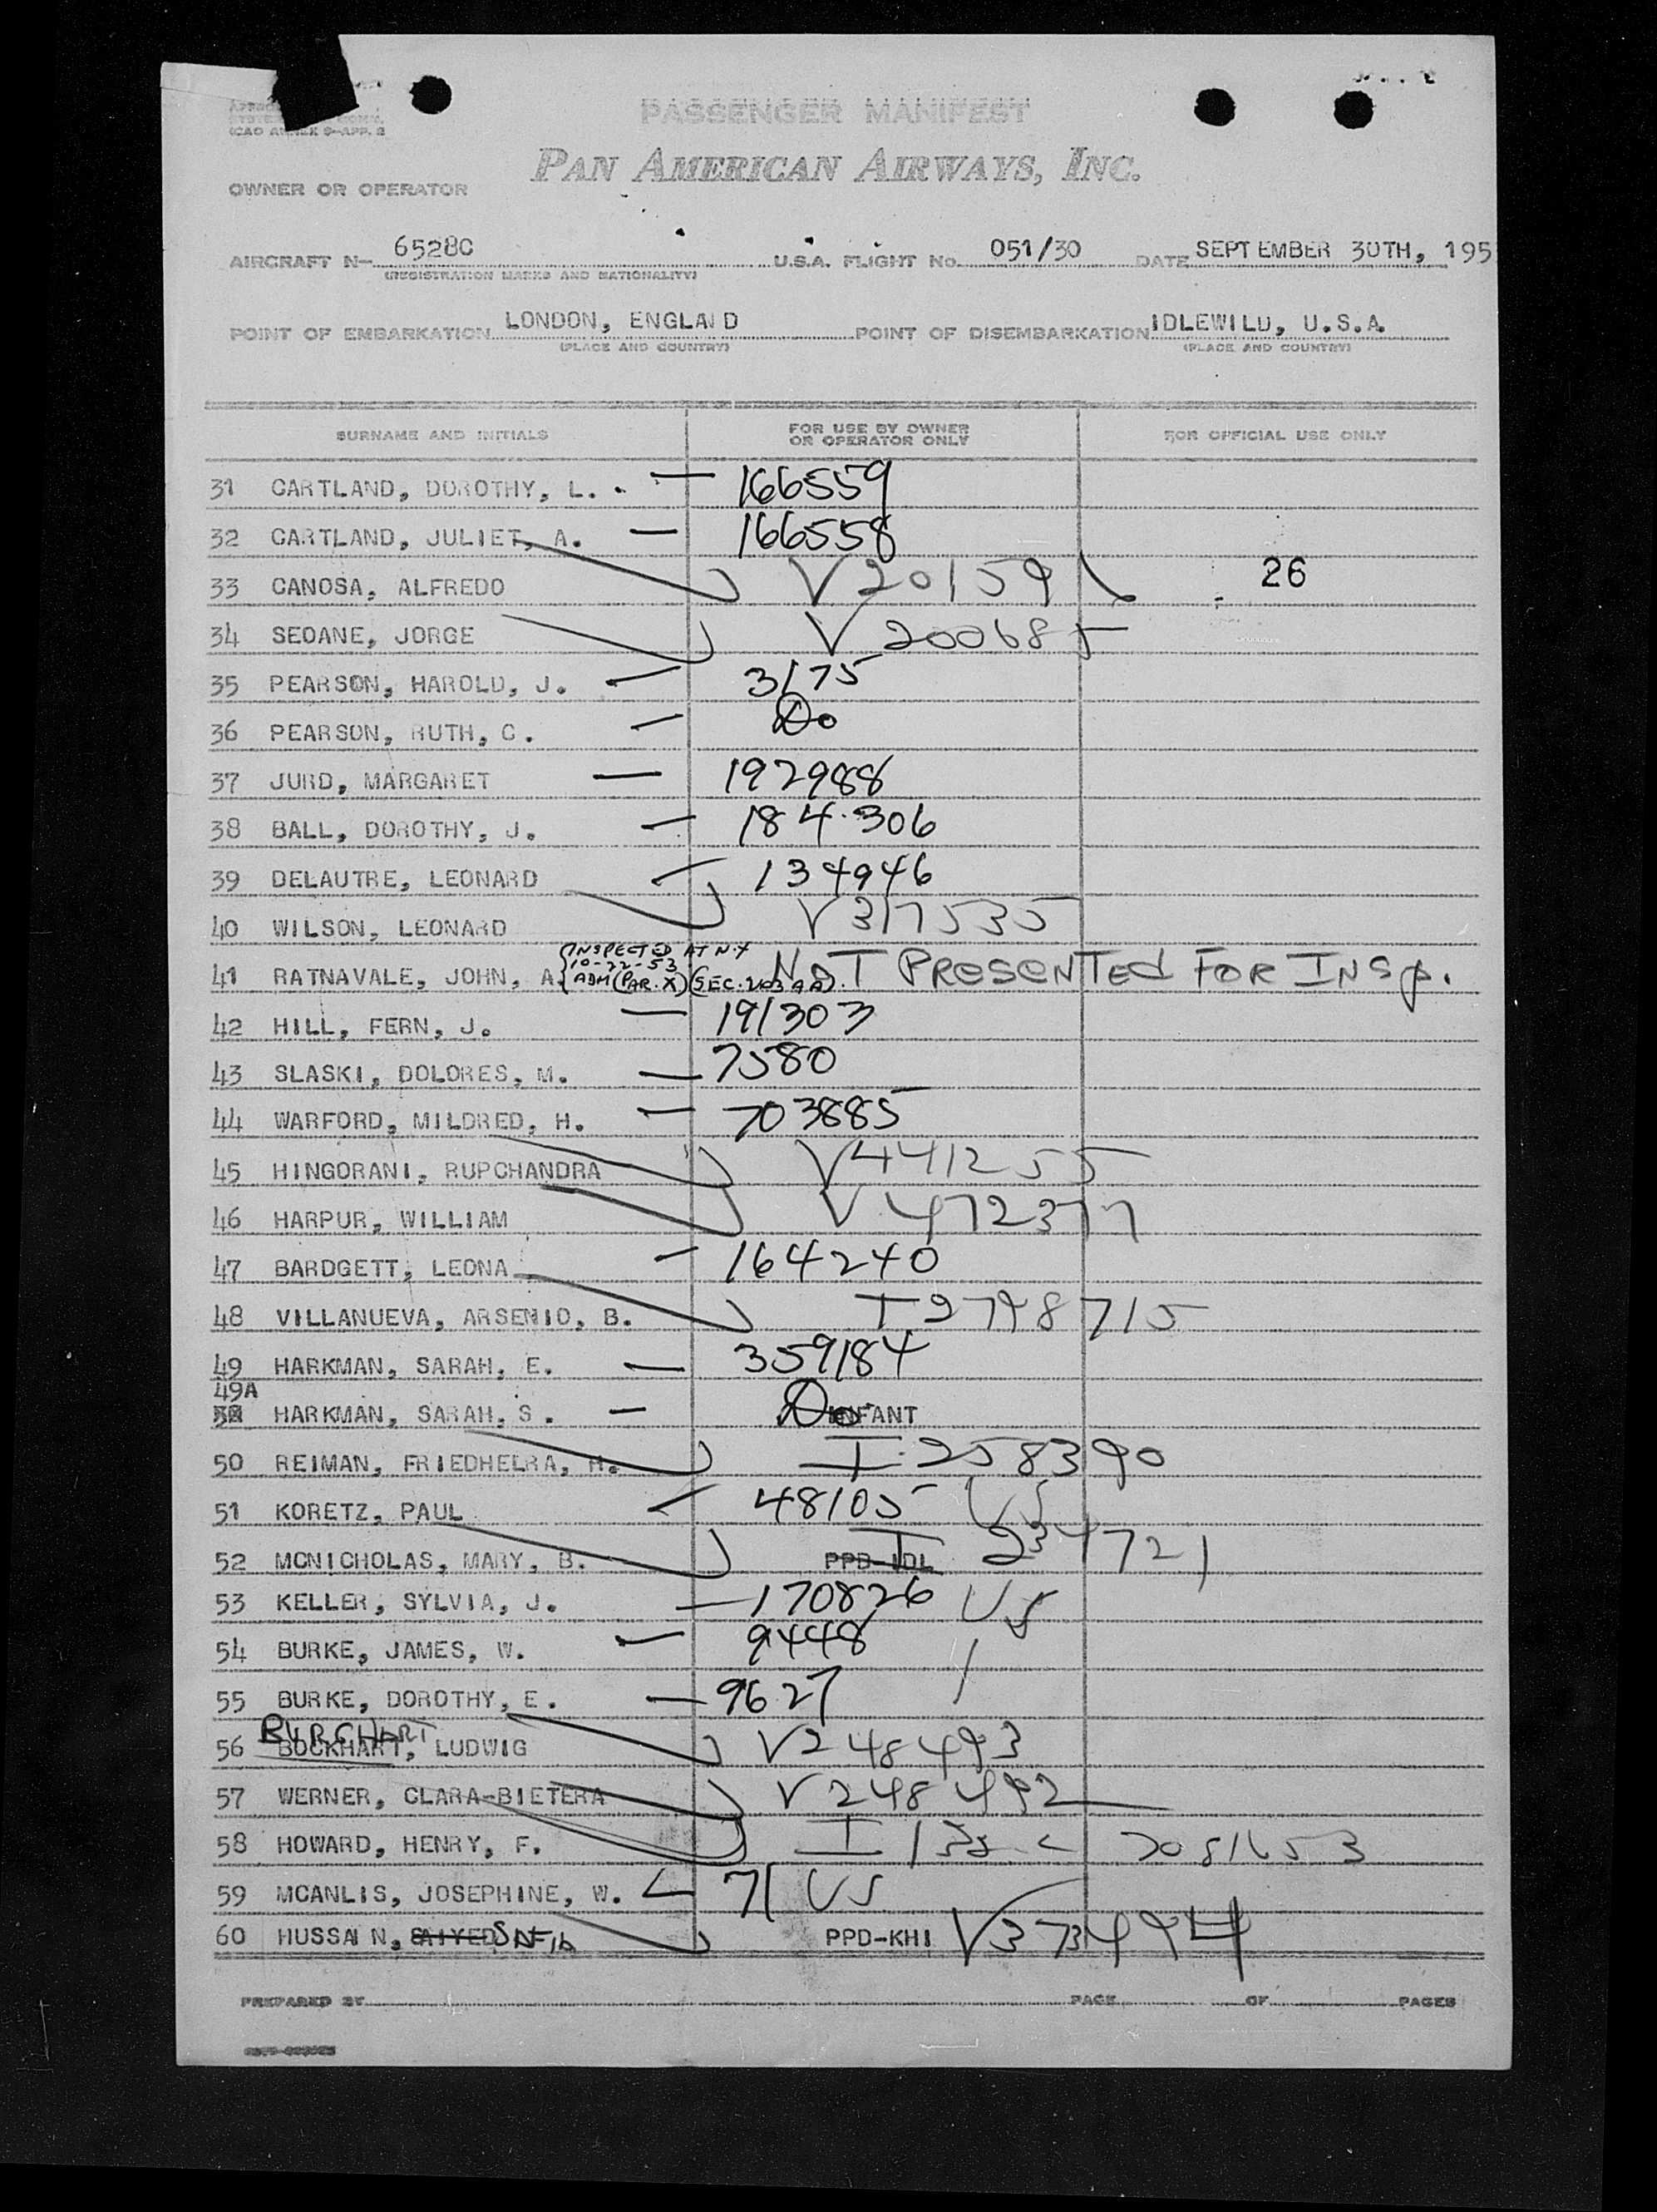 ICAO ANNEX 9-APP. 2
PASSENGER MANIFEST
PAN AMERICAN AIRWAYS, INC.
OWNER OR OPERATOR
AIRCRAFT N- 6528C U.S.A. FLIGHT No. 051/30 DATE SEPT EMBER 30TH, 195
(REGISTRATION MARKS AND NATIONALITY)
POINT OF EMBARKATION LONDON, ENGLAND POINT OF DISEMBARKATION IDLEWILD, U.S.A.
(PLACE AND COUNTRY) (PLACE AND COUNTRY)
SURNAME AND INITIALS FOR USE BY OWNER OR OPERATOR ONLY FOR OFFICIAL USE ONLY
31 CARTLAND, DOROTHY, L. . — 166559
32 CARTLAND, JULIET, A. — 166558
33 CANOSA, ALFREDO V201591 26
34 SEOANE, JORGE V200685
35 PEARSON, HAROLD, J. — 3175
36 PEARSON, RUTH, C. — Do
37 JURD, MARGARET — 192988
38 BALL, DOROTHY, J. — 184306
39 DELAUTRE, LEONARD — 134946
40 WILSON, LEONARD V317535
INSPECTED AT N.Y
10-22-53
41 RATNAVALE, JOHN, A. ADM (PAR. X) (SEC. 203 AA). NOT PRESENTED FOR INSP.
42 HILL, FERN, J. — 191303
43 SLASKI, DOLORES, M. — 7580
44 WARFORD, MILDRED, H. — 703885
45 HINGORANI, RUPCHANDRA V441255
46 HARPUR, WILLIAM V472377
47 BARDGETT, LEONA — 164240
48 VILLANUEVA, ARSENIO, B. I2798715
49 HARKMAN, SARAH, E. — 359184
49A
HARKMAN, SARAH, S. — Do INFANT
50 REIMAN, FRIEDHELRA, H. I 258390
51 KORETZ, PAUL — 48105 US
52 MCNICHOLAS, MARY, B. PPD-IDL I 234721
53 KELLER, SYLVIA, J. — 170826 US
54 BURKE, JAMES, W. — 9448
55 BURKE, DOROTHY, E. — 9627
BURCHART
56 BOCKHART, LUDWIG V248493
57 WERNER, CLARA-BIETERA V248492
58 HOWARD, HENRY, F. I 7081653
59 MCANLIS, JOSEPHINE, W. 71 US
60 HUSSAIN, SAIYED PPD-KHI V373494
PREPARED BY PAGE OF PAGES